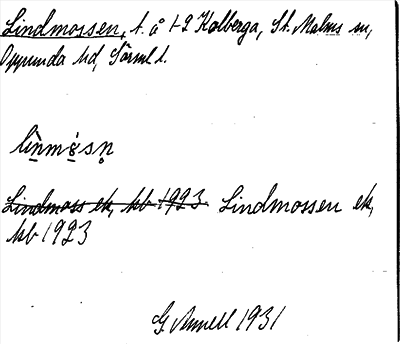 Lindmossen, t. å 1-2 Kolberga, St. Malms sn,
Oppunda hd, Sörml l.
lìnmǫ̀sn̥
Lindmoss ek, kb 1923. Lindmossen ek,
kb 1923
G Amell 1931